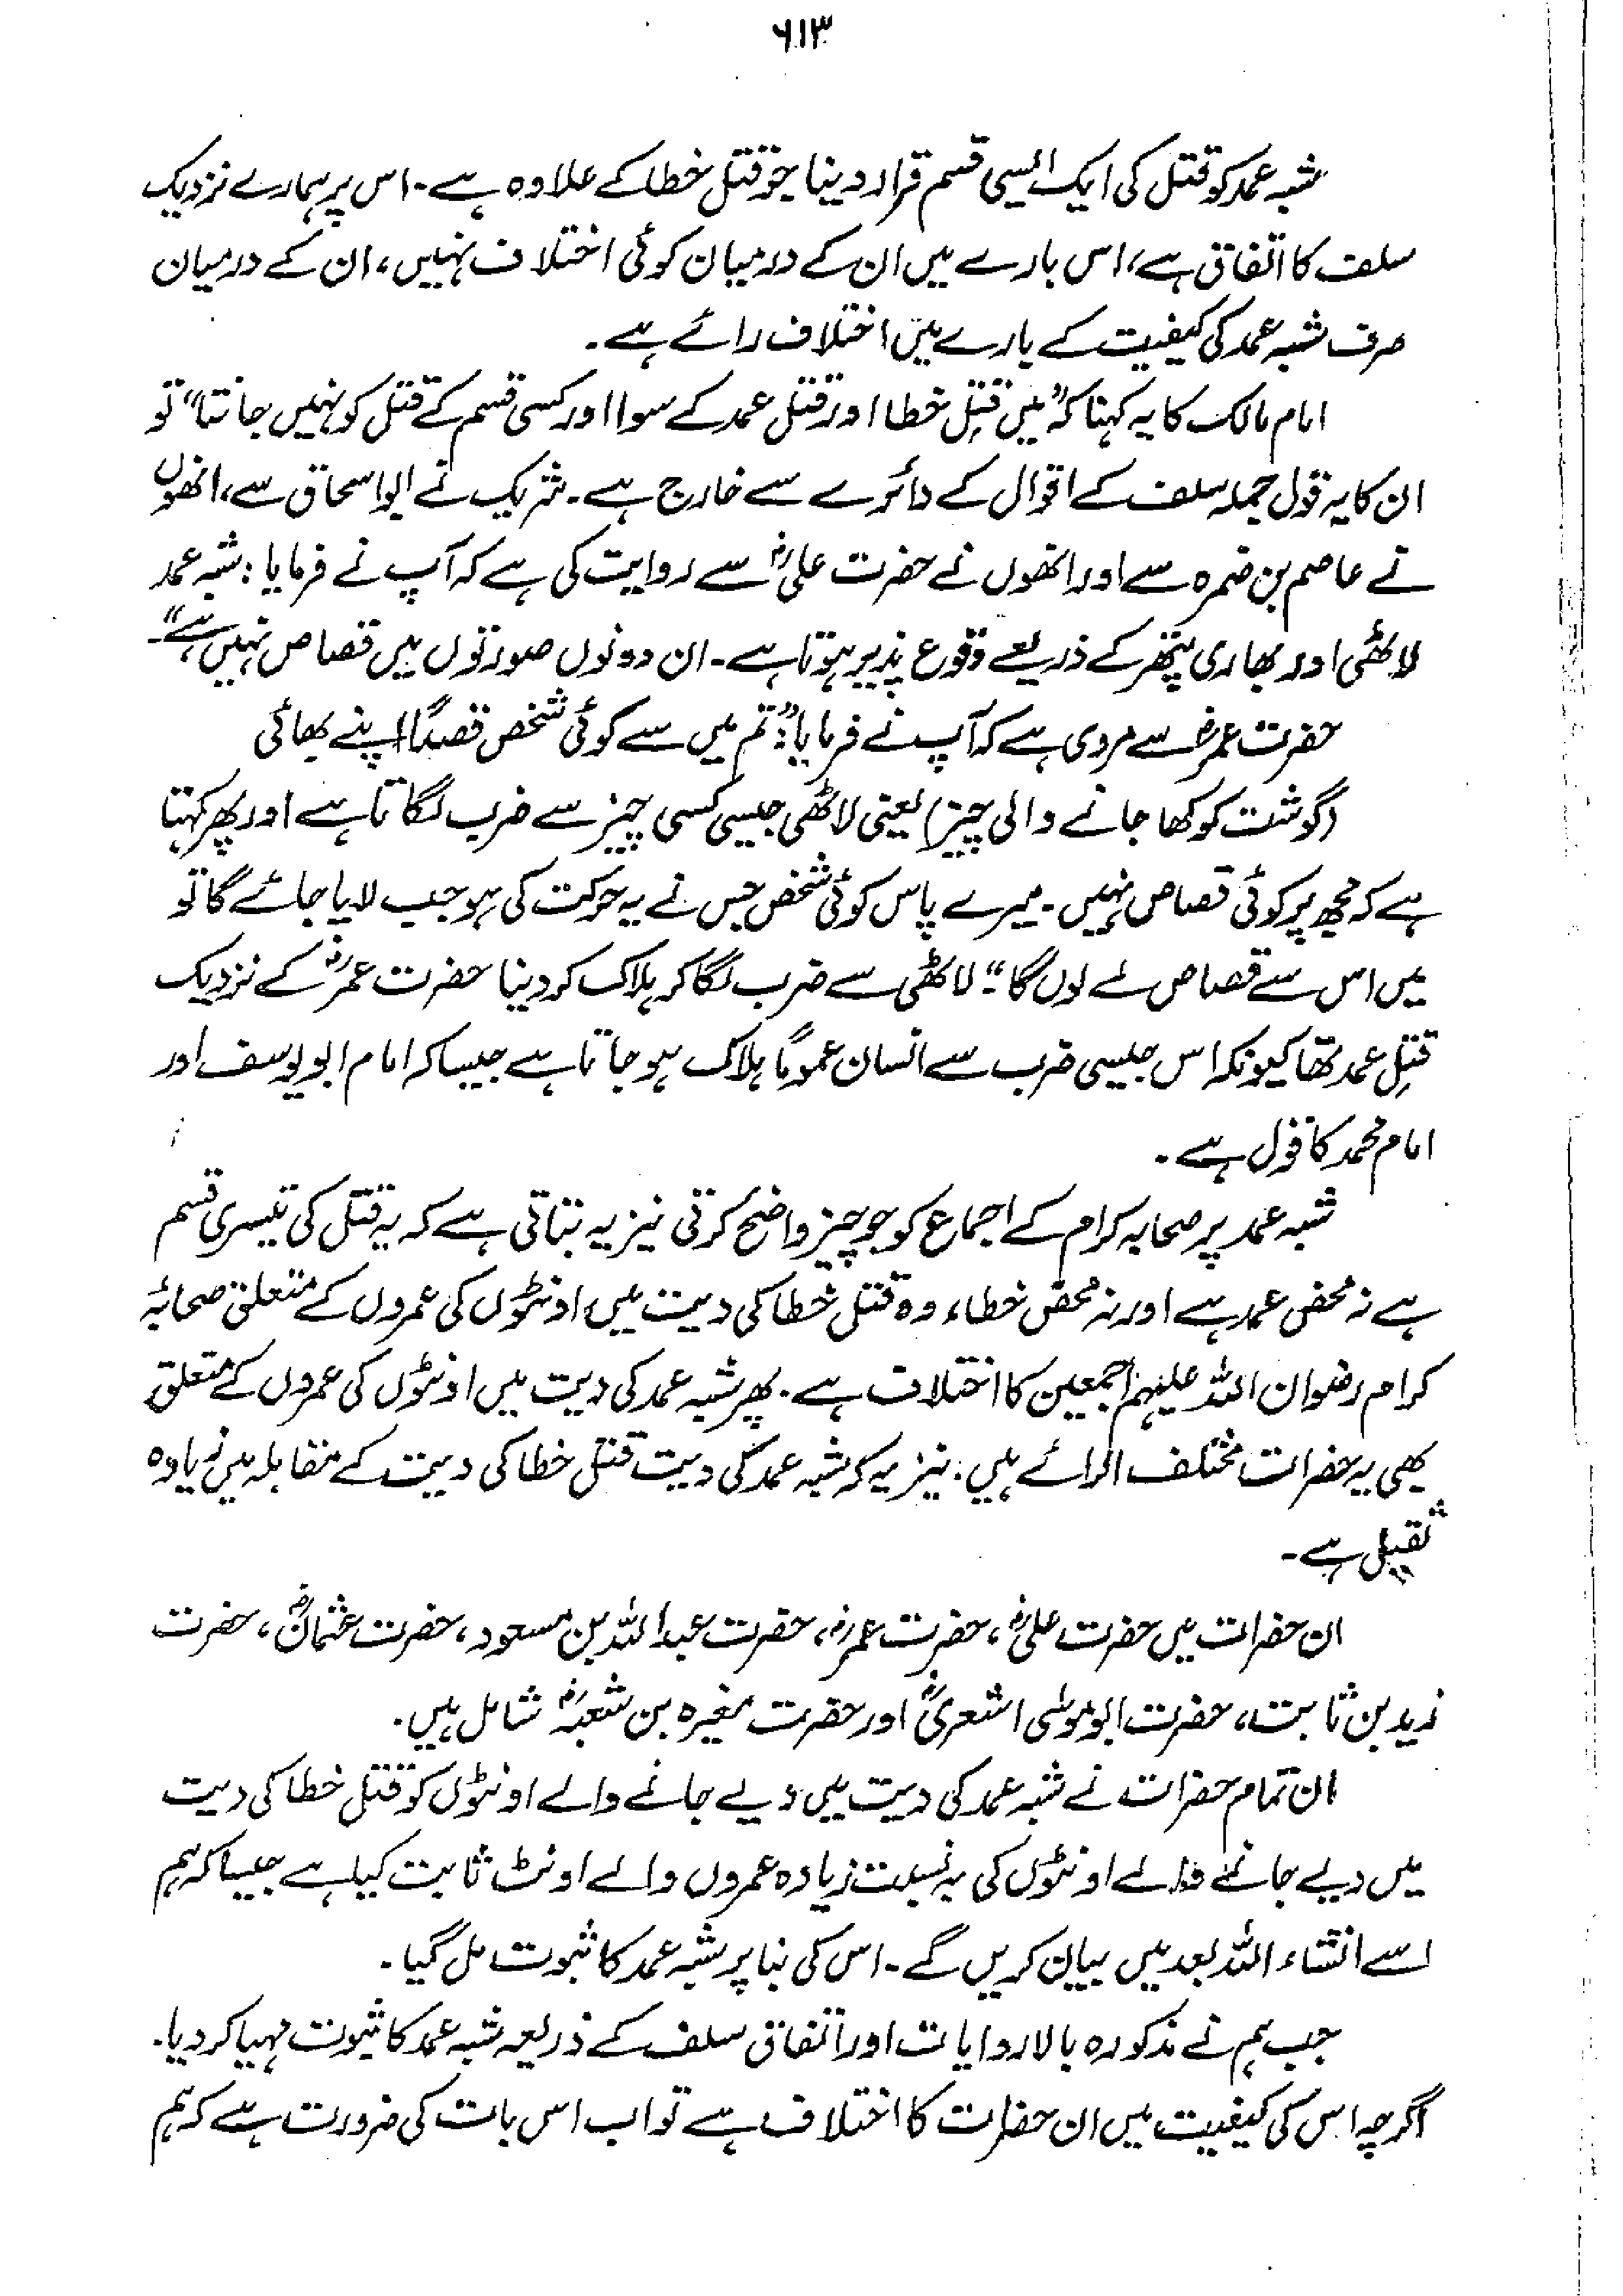 ۶۱۳
شبہ عمد کو قتل کی ایک ایسی قسم قرار دینا جو قتل خطا کے علاوہ ہے۔ اس پر ہمارے نزدیک
سلف کا اتفاق ہے، اس بارے میں ان کے درمیان کوئی اختلاف نہیں، ان کے درمیان
صرف شبہ عمد کی کیفیت کے بارے میں اختلاف رائے ہے۔
امام مالک کا یہ کہنا کہ ”میں قتلِ خطا اور قتل عمد کے سوا اور کسی قسم کے قتل کو نہیں جانتا“ تو
ان کا یہ قول جملہ سلف کے اقوال کے دائرے سے خارج ہے۔ شریک نے ابواسحاق سے، انھوں
نے عاصم بن ضمرہ سے اور انھوں نے حضرت علیؓ سے روایت کی ہے کہ آپ نے فرمایا: شبہ عمد
لاٹھی اور بھاری پتھر کے ذریعے وقوع پذیر ہوتا ہے۔ ان دونوں صورتوں میں قصاص نہیں ہے“۔
حضرت عمرؓ سے مروی ہے کہ آپ نے فرمایا: ”تم میں سے کوئی شخص قصداً اپنے بھائی
(گوشت کو کھا جانے والی چیز) یعنی لاٹھی جیسی کسی چیز سے ضرب لگاتا ہے اور پھر کہتا
ہے کہ مجھ پر کوئی قصاص نہیں۔ میرے پاس کوئی شخص جس نے یہ حرکت کی ہو جب لایا جائے گا تو
میں اس سے قصاص لے لوں گا“۔ لاٹھی سے ضرب لگا کر ہلاک کر دینا حضرت عمرؓ کے نزدیک
قتلِ عمد تھا کیونکہ اس جیسی ضرب سے انسان عموماً ہلاک ہو جاتا ہے جیسا کہ امام ابو یوسف اور
امام محمد کا قول ہے۔
شبہ عمد پر صحابہ کرام کے اجماع کو جو چیز واضح کرتی نیز یہ بتاتی ہے کہ یہ قتل کی تیسری قسم
ہے نہ محض عمد ہے اور نہ محض خطا، وہ قتل خطا کی دیت میں اونٹوں کی عمروں کے متعلق صحابۂ
کرام رضوان اللہ علیہم اجمعین کا اختلاف ہے۔ پھر شبہ عمد کی دیت میں اونٹوں کی عمروں کے متعلق
بھی یہ حضرات مختلف الرائے ہیں۔ نیز یہ کہ شبہ عمد کی دیت قتل خطا کی دیت کے مقابلہ میں زیادہ
ثقیل ہے۔
ان حضرات میں حضرت علیؓ، حضرت عمرؓ، حضرت عبداللہ بن مسعود، حضرت عثمانؓ، حضرت
زید بن ثابت، حضرت ابو موسٰی اشعریؓ اور حضرت مغیرہ بن شعبہؓ شامل ہیں۔
ان تمام حضرات نے شبہ عمد کی دیت میں دیے جانے والے اونٹوں کو قتل خطا کی دیت
میں دیے جانے والے اونٹوں کی بہ نسبت زیادہ عمروں والے اونٹ ثابت کیا ہے جیسا کہ ہم
اسے انشاء اللہ بعد میں بیان کریں گے۔ اس کی بنا پر شبہ عمد کا ثبوت مل گیا۔
جب ہم نے مذکورہ بالا روایات اور اتفاق سلف کے ذریعہ شبہ عمد کا ثبوت مہیا کر دیا۔
اگرچہ اس کی کیفیت میں ان حضرات کا اختلاف ہے تو اب اس بات کی ضرورت ہے کہ ہم